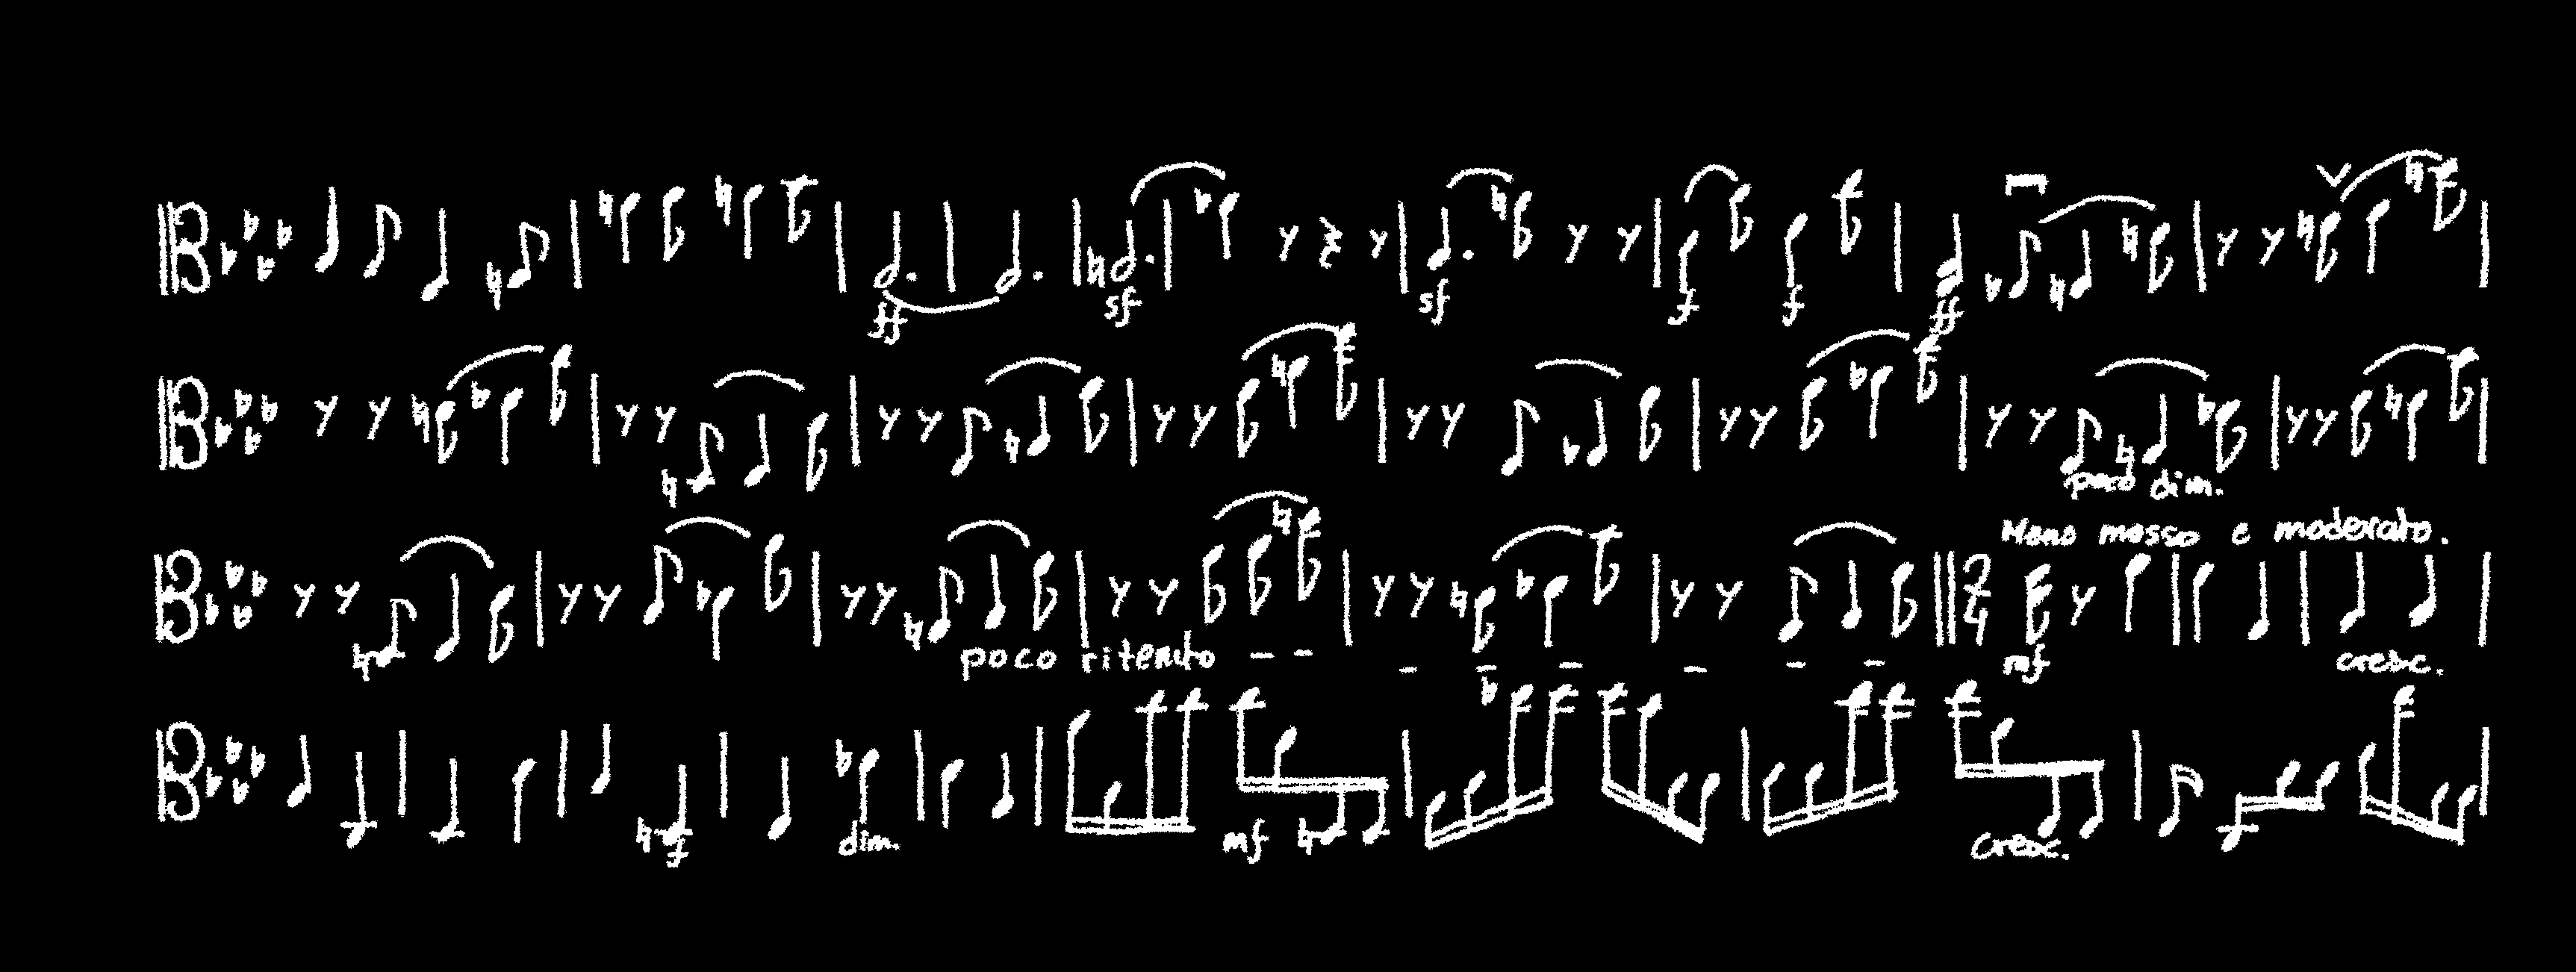 ff sf sf f f ff
poco dim.
Meno mosso e moderato.
poco ritenuto - - - - - - - - mf cresc.
f dim. mf cresc.